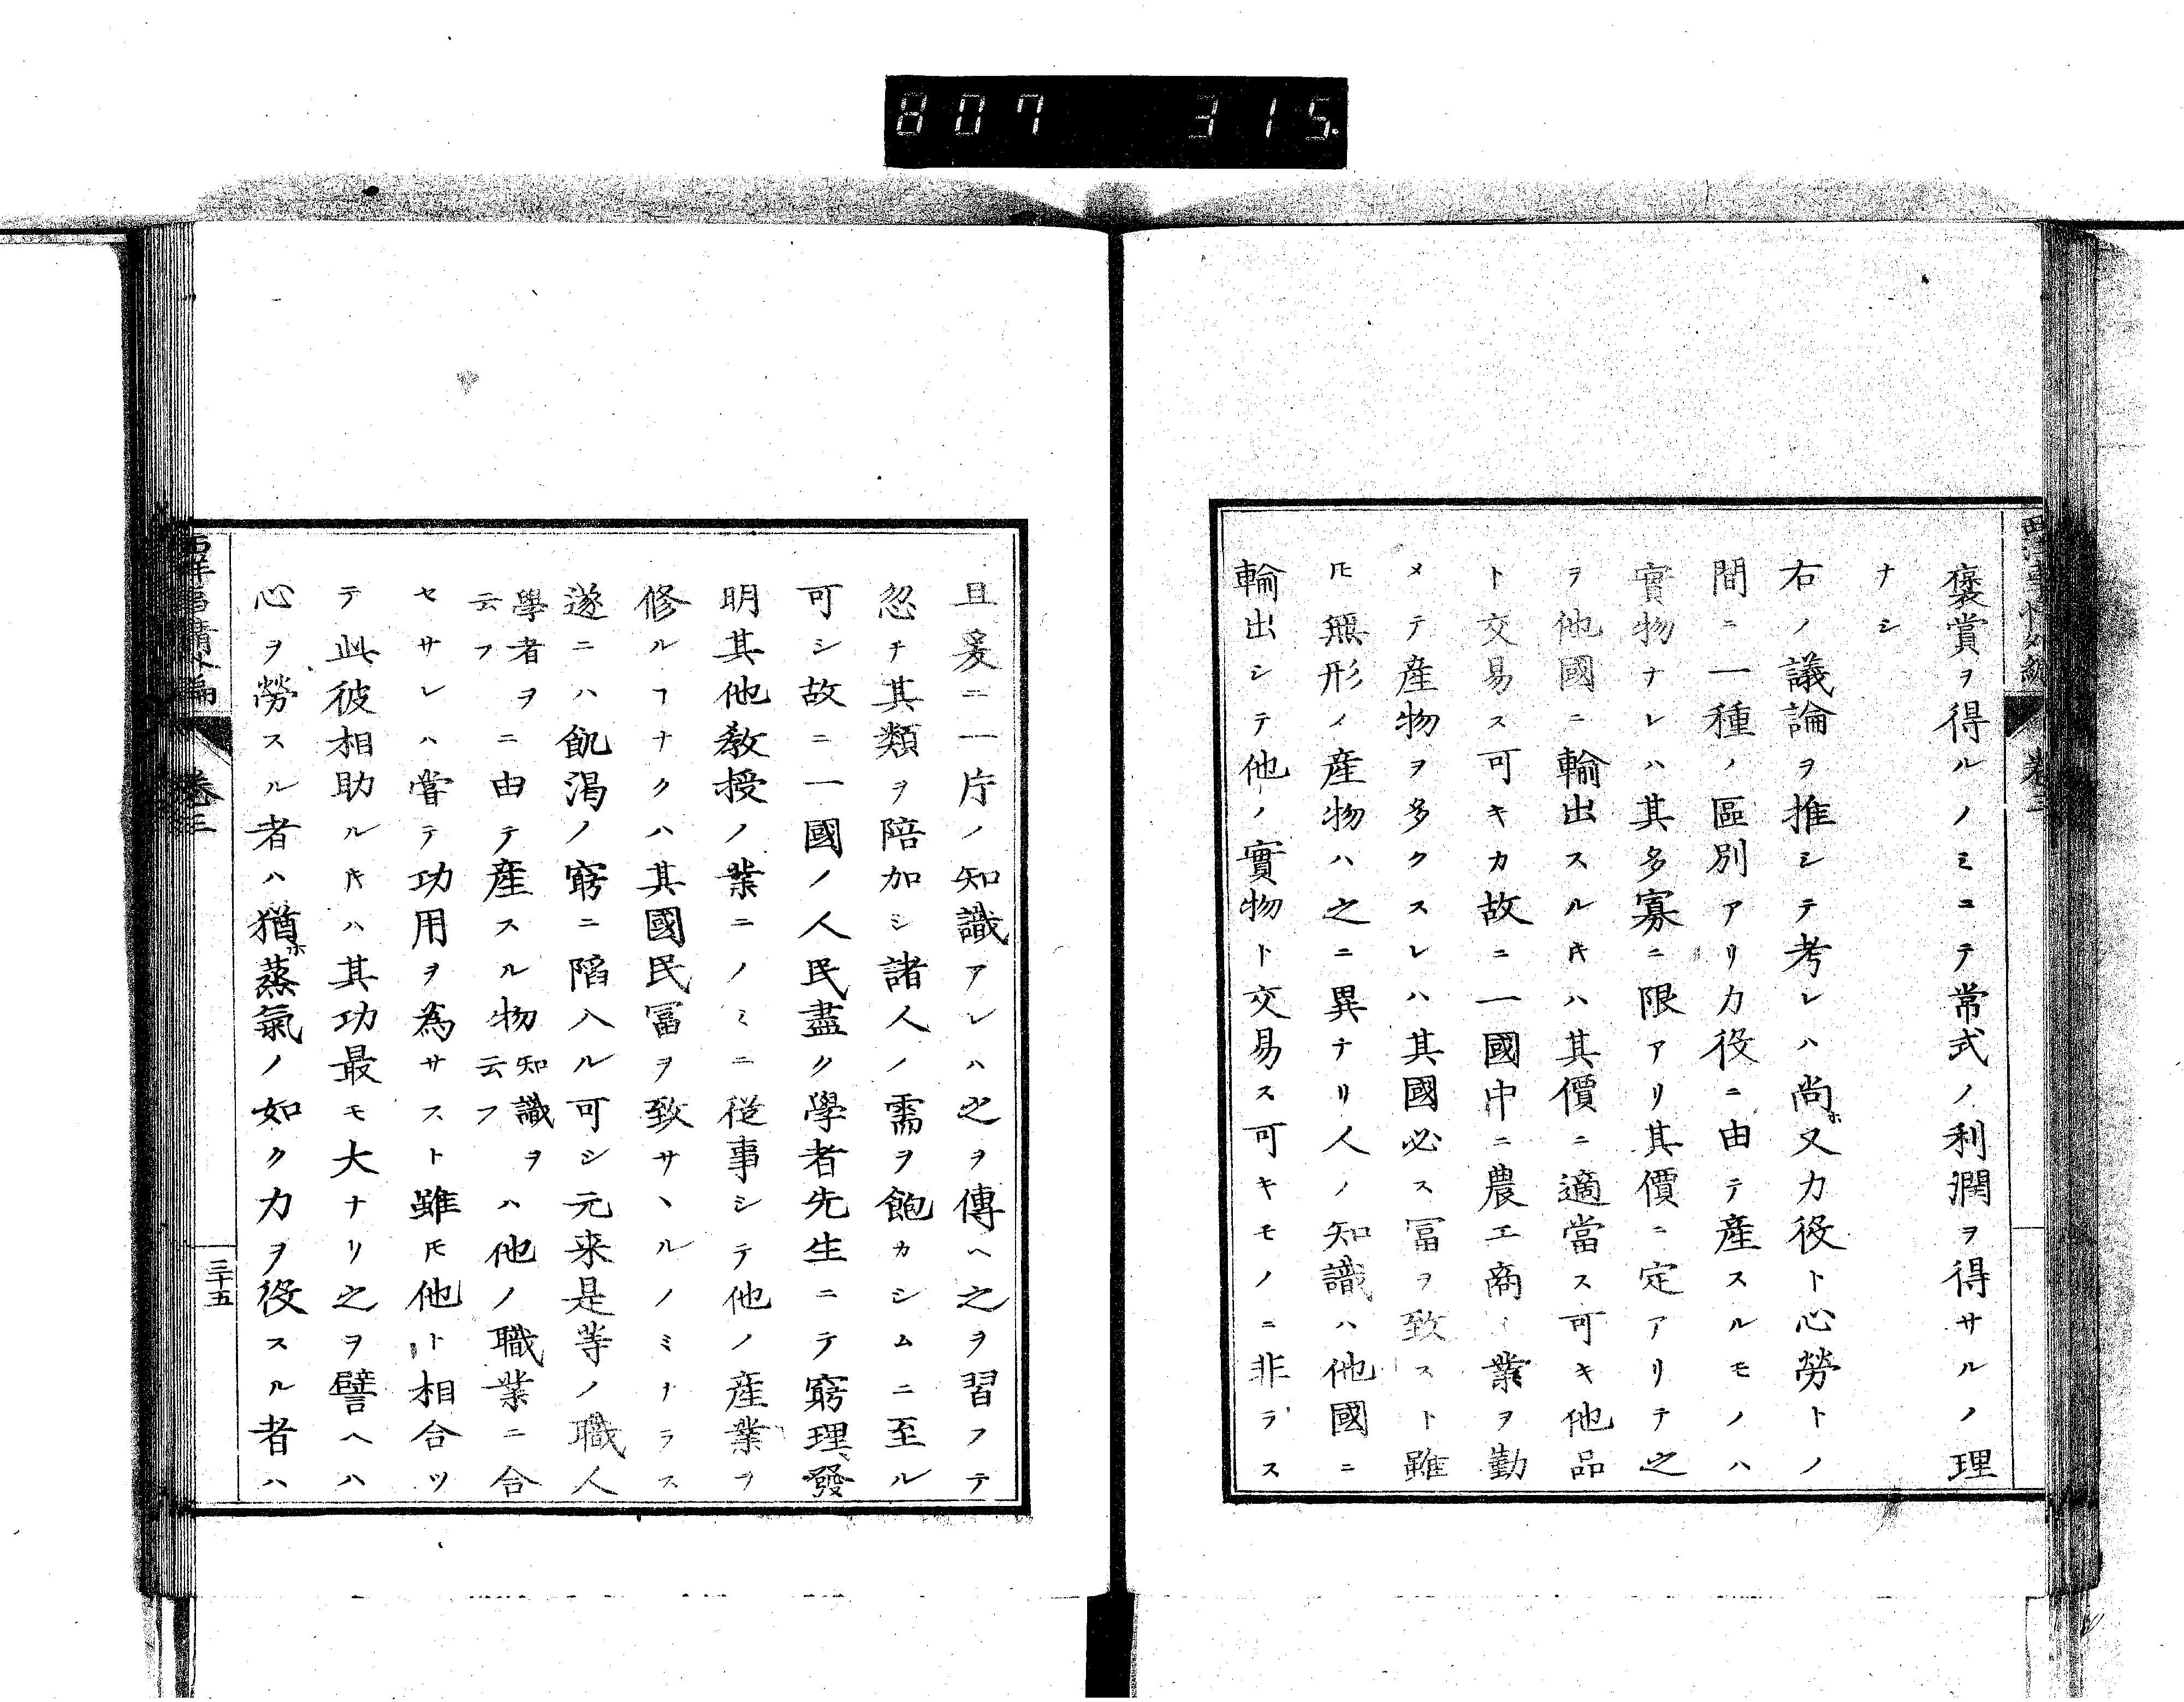 807 315.
西洋事情外編 卷三
褒賞ヲ得ルノミニテ常式ノ利潤ヲ得サルノ理
ナシ
右ノ議論ヲ推シテ考レハ尚ホ又力役ト心勞トノ
間ニ一種ノ區別アリ力役ニ由テ產スルモノハ
實物ナレハ其多寡ニ限アリ其價ニ定アリテ之
ヲ他國ニ輸出スルキハ其價ニ適當ス可キ他品
ト交易ス可キカ故ニ一國中ニ農工商ノ業ヲ勤
メテ產物ヲ多クスレハ其國必ス冨ヲ致スト雖
𪜈無形ノ產物ハ之ニ異ナリ人ノ知識ハ他國ニ
輸出シテ他ノ實物ト交易ス可キモノニ非ラス
且爰ニ一庁ノ知識アレハ之ヲ傳ヘ之ヲ習フテ
忽チ其類ヲ陪加シ諸人ノ需ヲ飽カシムニ至ル
可シ故ニ一國ノ人民盡ク學者先生ニテ窮理發
明其他敎授ノ業ニノミニ從事シテ他ノ產業ヲ
修ルヿナクハ其國民冨ヲ致サヽルノミナラス
遂ニハ飢渴ノ窮ニ陷入ル可シ元来是等ノ職人
學者ヲ云フニ由テ產スル物知識ヲ云フハ他ノ職業ニ合
セサレハ嘗テ功用ヲ為サスト雖𪜈他ト相合ツ
テ此彼相助ルキハ其功最モ大ナリ之ヲ譬ヘハ
心ヲ勞スル者ハ猶ホ蒸氣ノ如ク力ヲ役スル者ハ
西洋事情外編 卷三 三十五